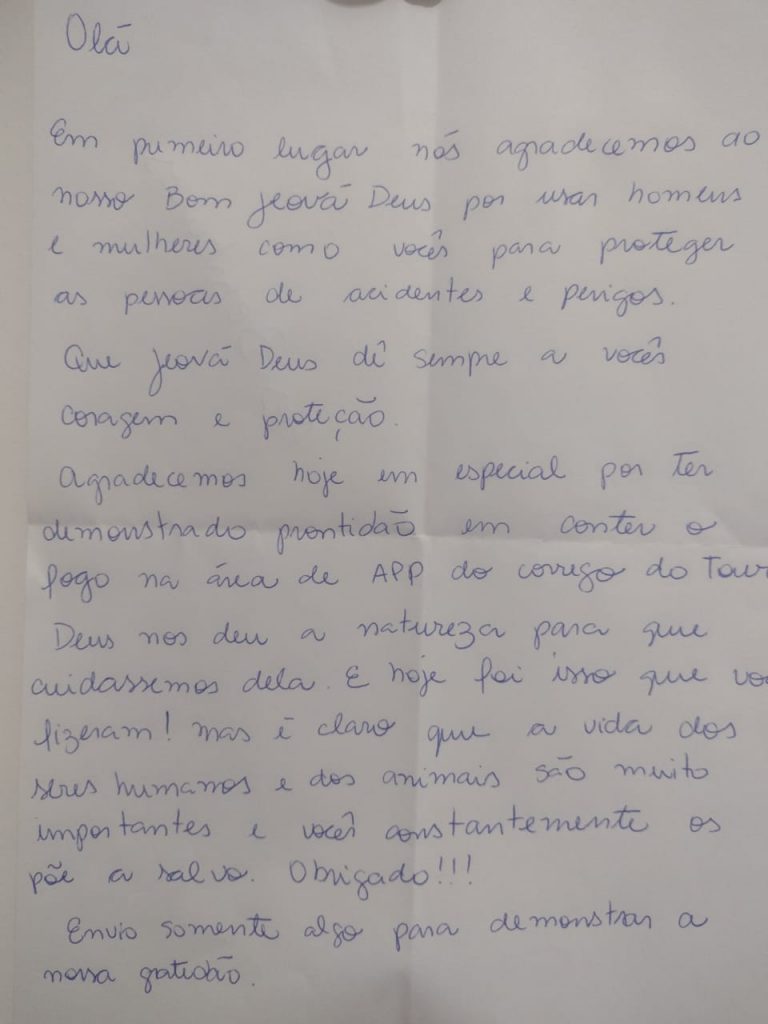 Olá
Em primeiro lugar nós agradecemos ao
nosso Bom Jeová Deus por usar homens
e mulheres como vocês para proteger
as pessoas de acidentes e perigos.
Que Jeová Deus dê sempre a vocês
coragem e proteção.
Agradecemos hoje em especial por ter
demonstrado prontidão em conter o
fogo na área de APP do corrego do Tour
Deus nos deu a natureza para que
cuidassemos dela. E hoje foi isso que vo
fizeram! mas é claro que a vida dos
seres humanos e dos animais são muito
importantes e vocês constantemente os
põe a salvo. Obrigado!!!
Envio somente algo para demonstrar a
nossa gratidão.